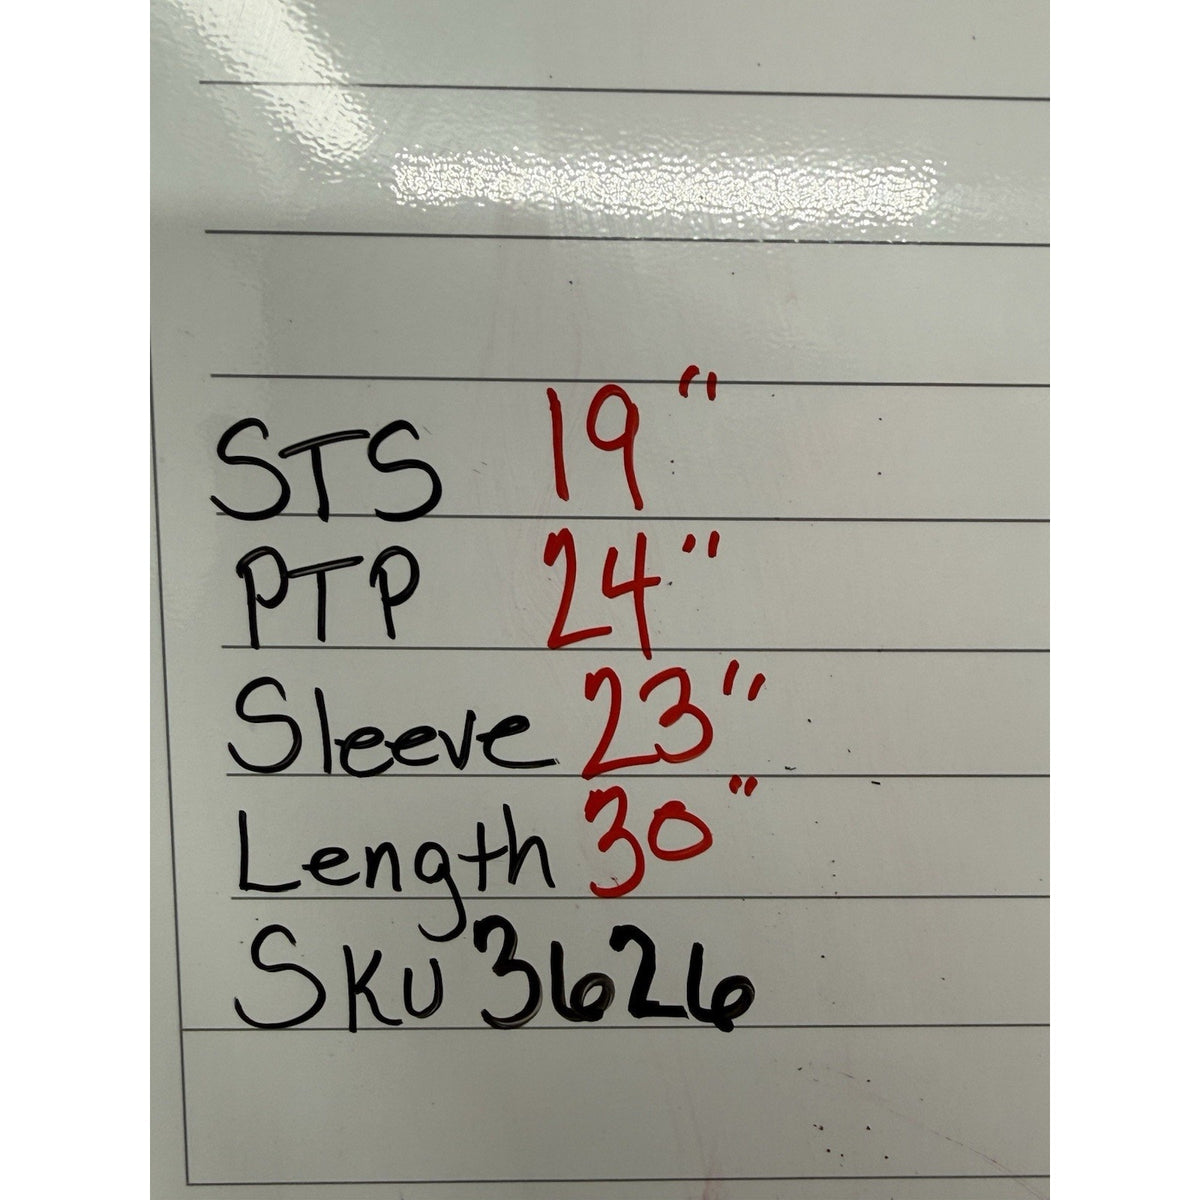 STS 19"
PTP 24"
Sleeve 23"
Length 30"
SKU 3626